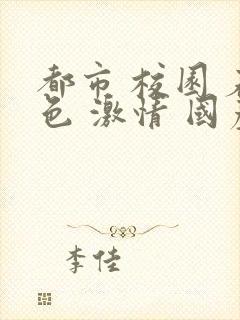 都市 校园
色 激情 国
李佳